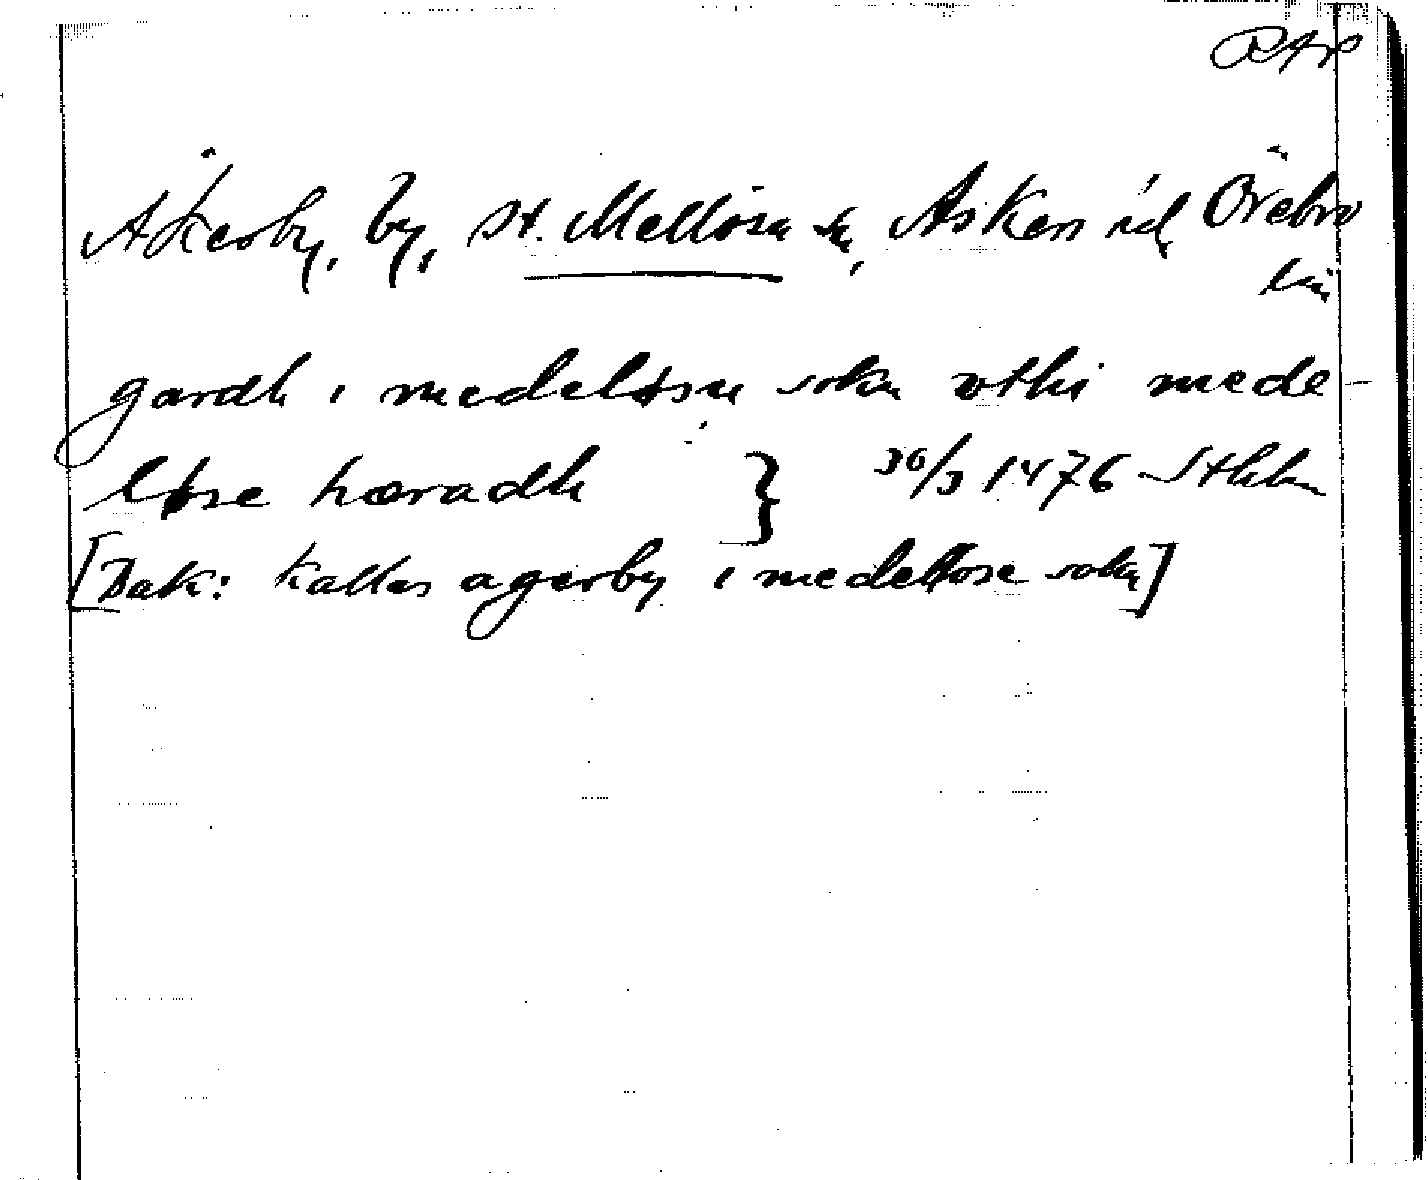 RAP
Åkerby, by, St. Mellösa sn, Askers hd, Örebro
län
gardh i medeløsu sokn vthi mede-
løse hæradh } 30/3 1476 Sthlm
[Bak: kallas agerby i medelløse sokn]